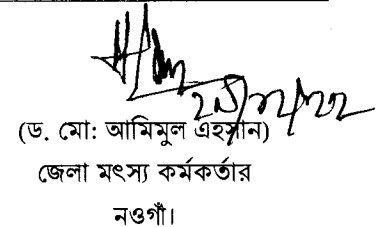 (ড. মো: আমিমুল এহসান)
জেলা মৎস্য কর্মকর্তার
নওগাঁ।